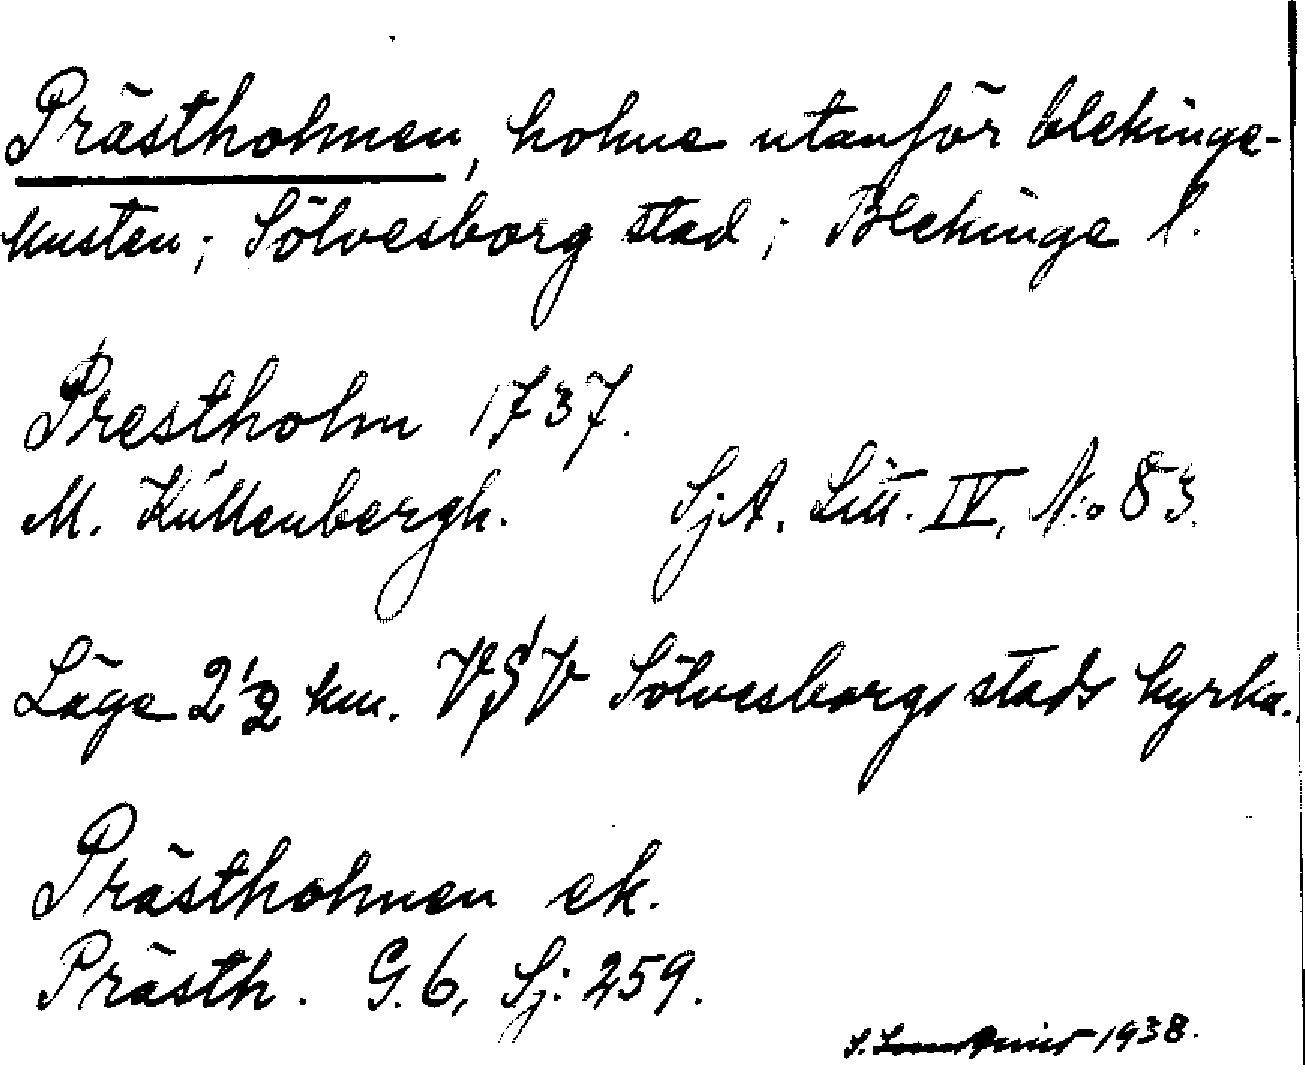 Prästholmen, holme utanför blekinge-
kusten; Sölvesborg stad; Blekinge l.
Prestholm 1737.
M. Küllenbergh. SjA. Litt. IV, N:o 83.
Läge 2 1/2 km. VSV Sölvesborgs stads kyrka.
Prästholmen ek.
Prästh. G. 6, Sj: 259.
S. 1938.